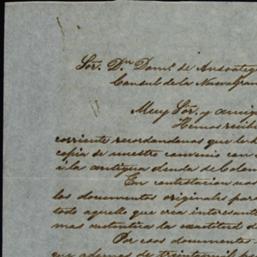 Sor. Dn. Domo. de Ansoteg
Consul de la Nueva Gran
Muy Sor. y amigo
Hemos recibi
corriente recordandonos que le d
copia de nuestro convenio con
á la antigua deuda de Colom
En contestacion nos
los documentos originales para
todo aquello que crea interesante
mas autentica la exactitud d
Por esos documentos
que ademas de treintaymil pe